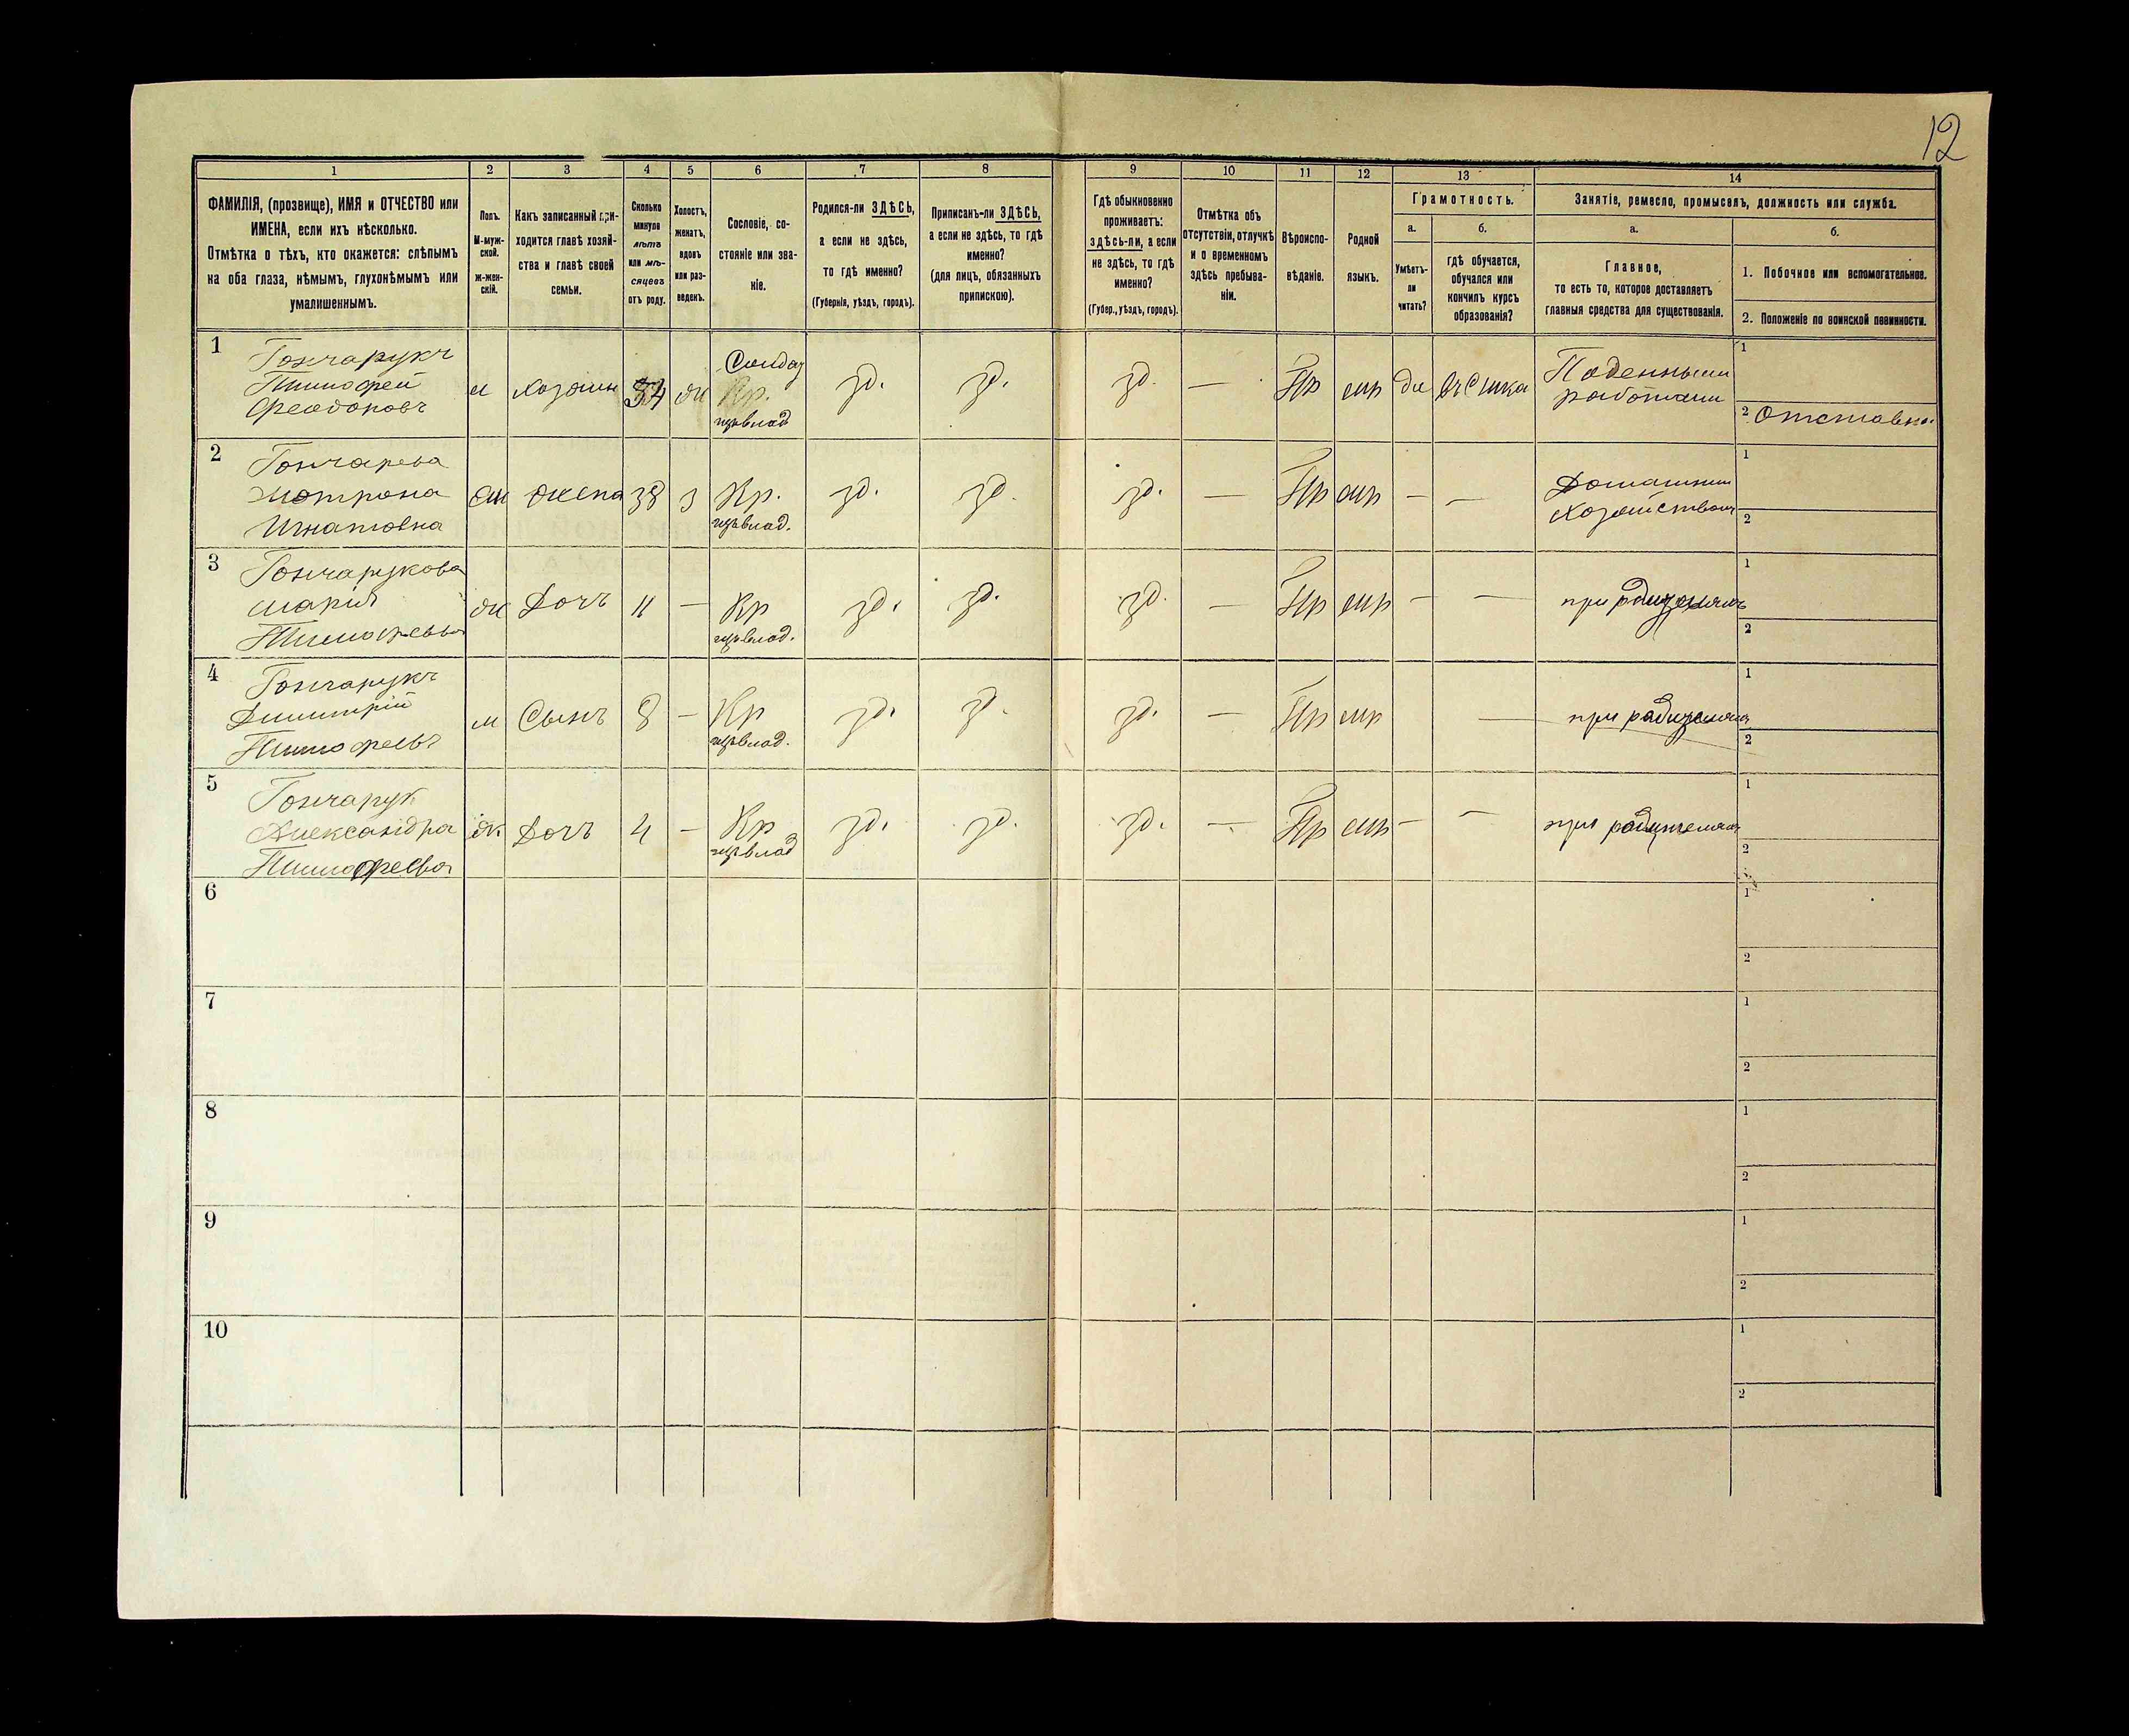 12
1 2 3 4 5 6 7 8 9 10 11 12 13 14
ФАМИЛІЯ, (прозвище), ИМЯ и ОТЧЕСТВО или
ИМЕНА, если ихъ нѣсколько.
Отмѣтка о тѣхъ, кто окажется: слѣпымъ
на оба глаза, нѣмымъ, глухонѣмымъ или
умалишеннымъ.
Полъ.
М-муж-
ской.
ж-жен-
скій.
Какъ записанный при-
ходится главѣ хозяй-
ства и главѣ своей
семьи.
Сколько
минуло
лѣтъ
или мѣ-
сяцевъ
отъ роду.
Холостъ,
женатъ,
вдовъ
или раз-
веденъ.
Сословіе, со-
стояніе или зва-
ніе.
Родился-ли ЗДѢСЬ,
а если не здѣсь,
то гдѣ именно?
(Губернія, уѣздъ, городъ).
Приписанъ-ли ЗДѢСЬ,
а если не здѣсь, то гдѣ
именно?
(для лицъ, обязанныхъ
припискою).
Гдѣ обыкновенно
проживаетъ:
здѣсь-ли, а если
не здѣсь, то гдѣ
именно?
(Губер., уѣздъ, городъ).
Отмѣтка объ
отсутствіи, отлучкѣ
и о временномъ
здѣсь пребыва-
ніи.
Вѣроиспо-
вѣданіе.
Родной
языкъ.
Грамотность.
а.
Умѣетъ-
ли
читать?
б.
гдѣ обучается,
обучался или
кончилъ курсъ
образованія?
Занятіе, ремесло, промыселъ, должность или служба.
а.
Главное,
то есть то, которое доставляетъ
главныя средства для существованія.
б.
1. Побочное или вспомогательное.
2. Положеніе по воинской повинности.
1
Гончарукъ
Тимофей
Феодоровъ
м хозяинъ 34 ж
Солдат
Кр.
зд. зд. зд. — Пр мр да
Поденным
работами
1
2 Отставн.
2
Гончарева
Мотрона
Игнатовна
ж жена 38 з Кр.
зд. зд. зд. — Пр мр — —
Домашним
Хозяйством
1
2
3
Гончарукова
Марія
Тимофеева
ж Дочъ 11 — Кр
зд. зд. зд. — Пр мр — —
при
1
2
4
Гончарукъ
Димитрій
Тимофеевъ
м Сынъ 8 — Кр
зд. зд. зд. — Пр мр —
при
1
2
5
Гончарук
Александра
Тимофеева
ж. Дочъ 4 — Кр
зд. зд. зд. — Пр мр — —
при
1
2
6
1
2
7
1
2
8
1
2
9
1
2
10
1
2